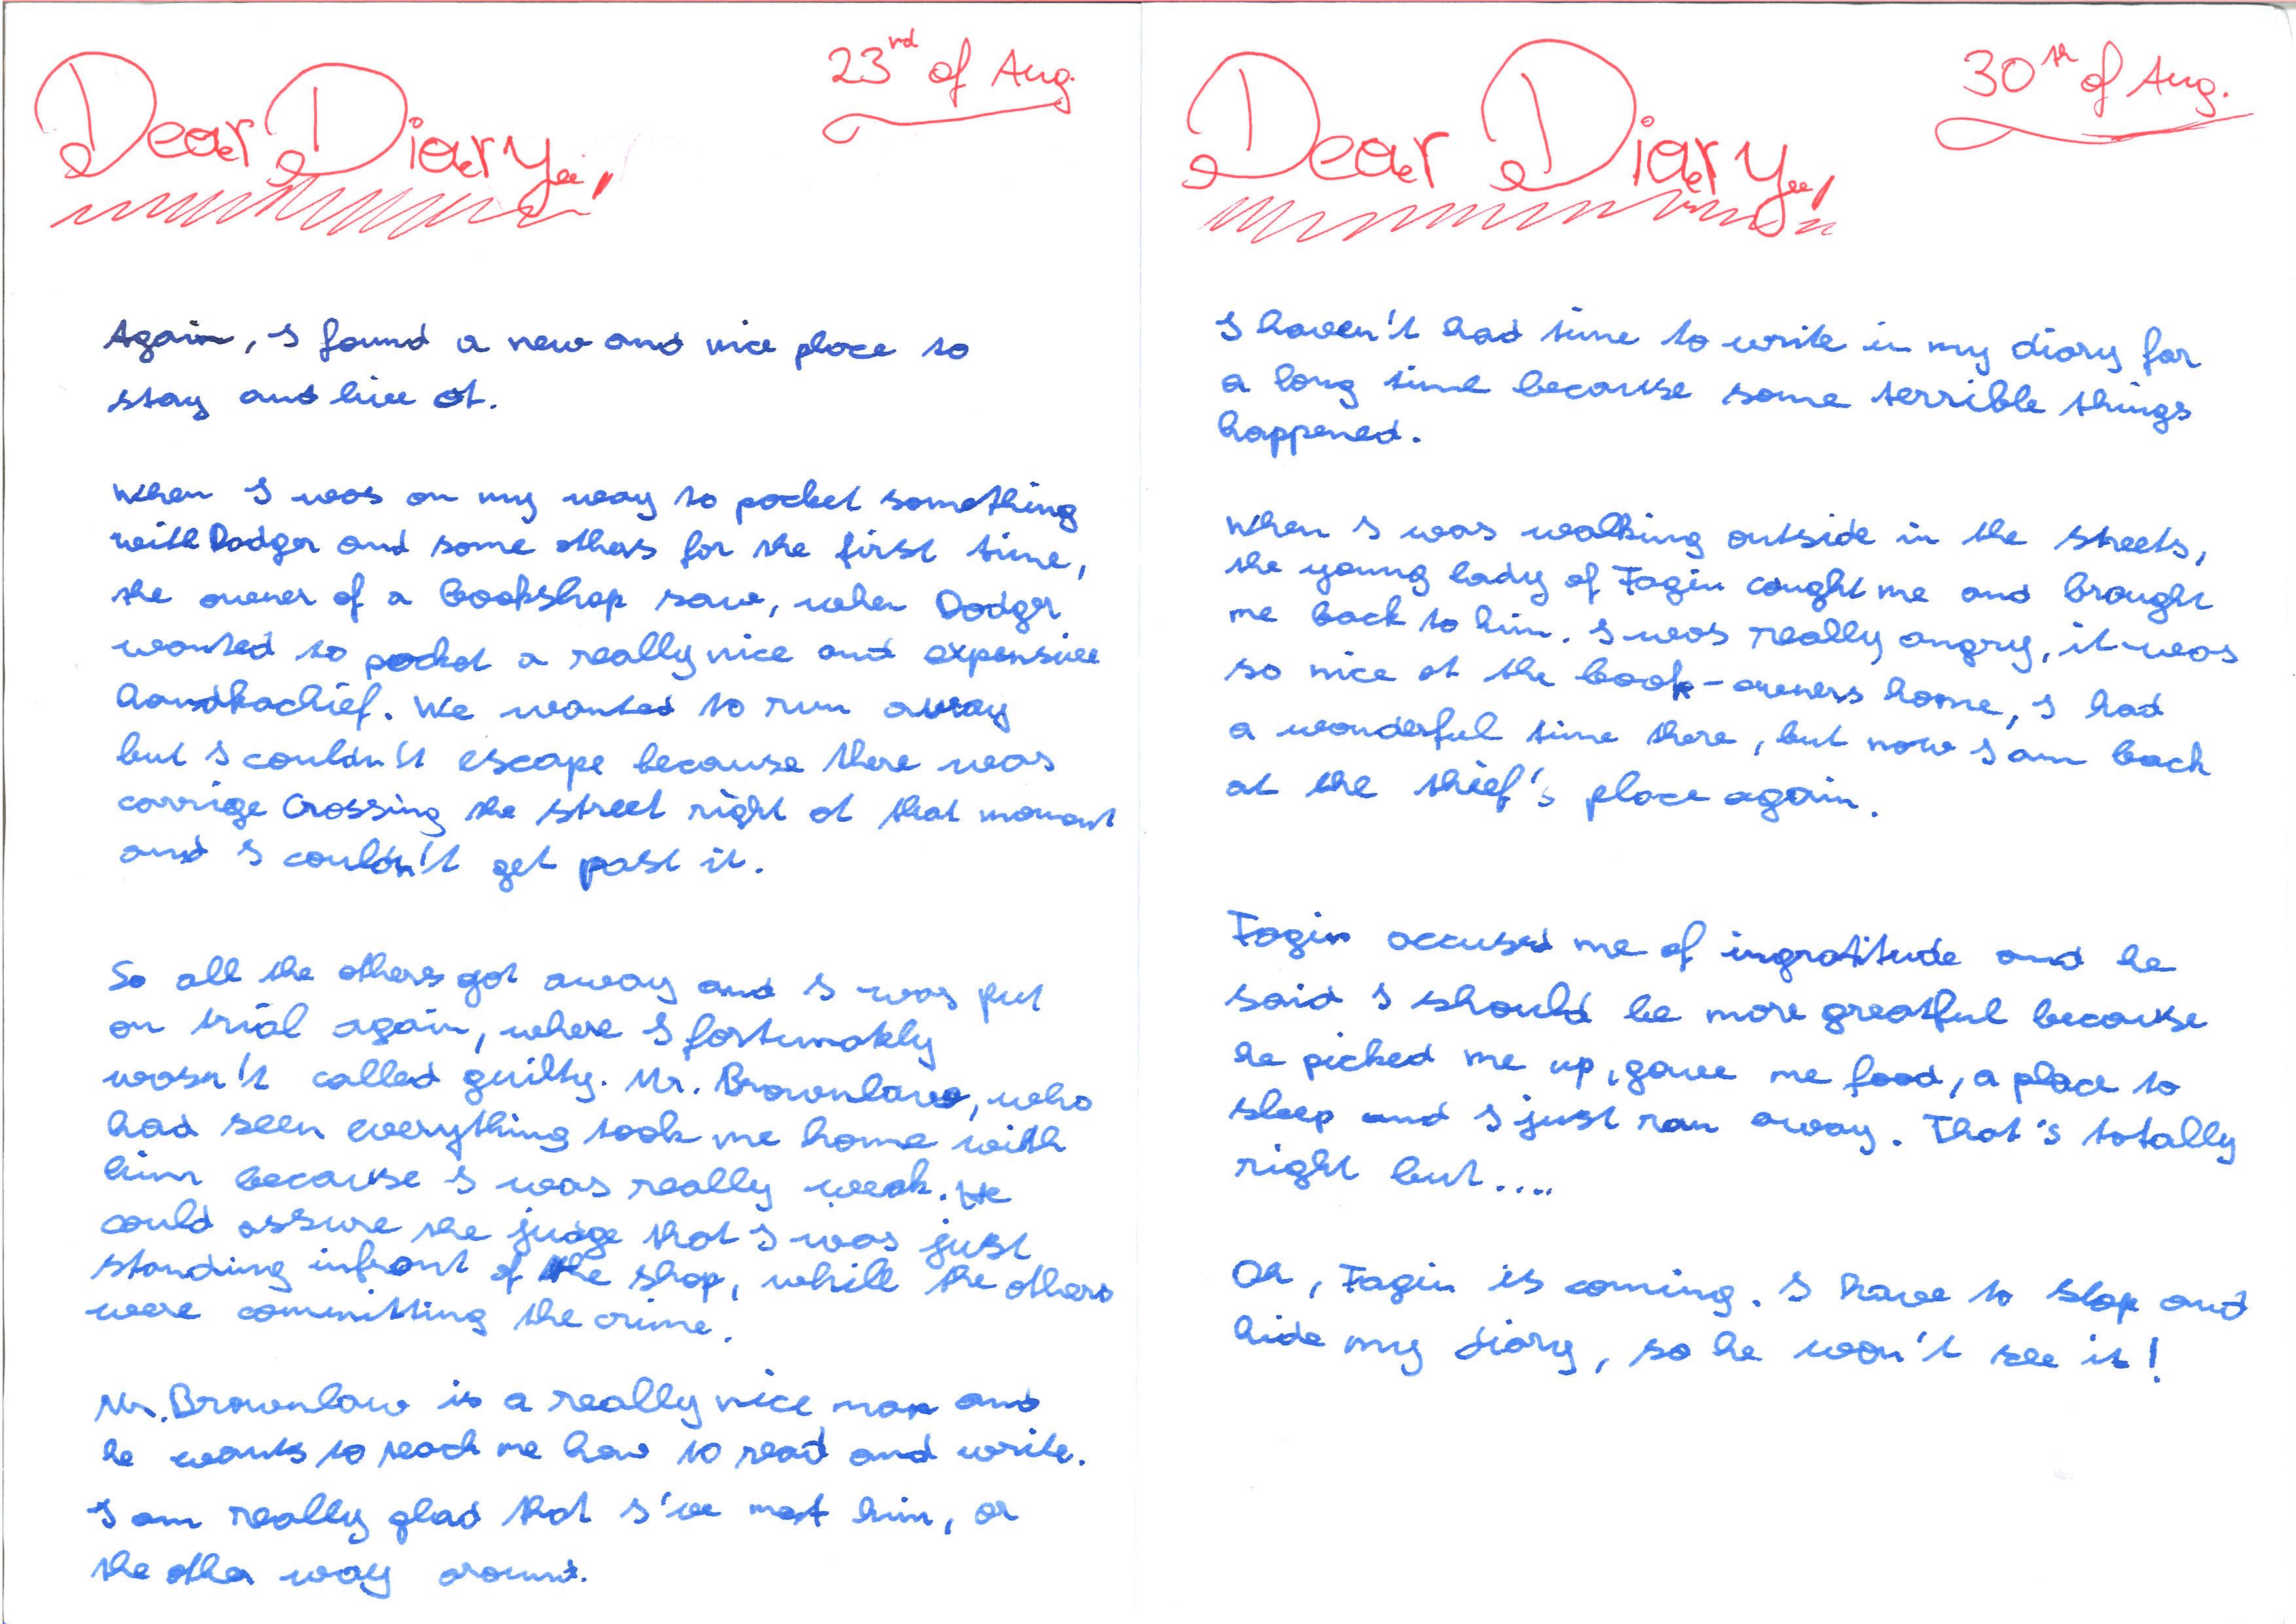 23rd of Aug.
Dear Diary,
Again, I found a new and nice place to
stay and live at.
When I was on my way to pocket something
with Dodger and some others for the first time,
the owner of a bookshop saw, when Dodger
wanted to pocket a really nice and expensive
handkachief. We wanted to run away
but I couldn't escape because there was
carrige crossing the street right at that moment
and I couldn't get past it.
So all the others got away and I was put
on trial again, where I fortunately
wasn't called guilty. Mr. Brownlow, who
had seen everything took me home with
him because I was really weak. He
could assure the judge that I was just
standing infront of the shop, while the others
were committing the crime.
Mr. Brownlow is a really nice man and
he wants to teach me how to read and write.
I am really glad that I've met him, or
the other way around.
30th of Aug.
Dear Diary,
I haven't had time to write in my diary for
a long time because some terrible things
happened.
When I was walking outside in the streets,
the young lady of Fagin cought me and brought
me back to him. I was really angry, it was
so nice at the book-owners home, I had
a wonderful time there, but now I am back
at the thief's place again.
Fagin accused me of ingratitude and he
said I should be more greatful because
he picked me up, gave me food, a place to
sleep and I just ran away. That's totally
right but....
Oh, Fagin is coming. I have to stop and
hide my diary, so he won't see it!